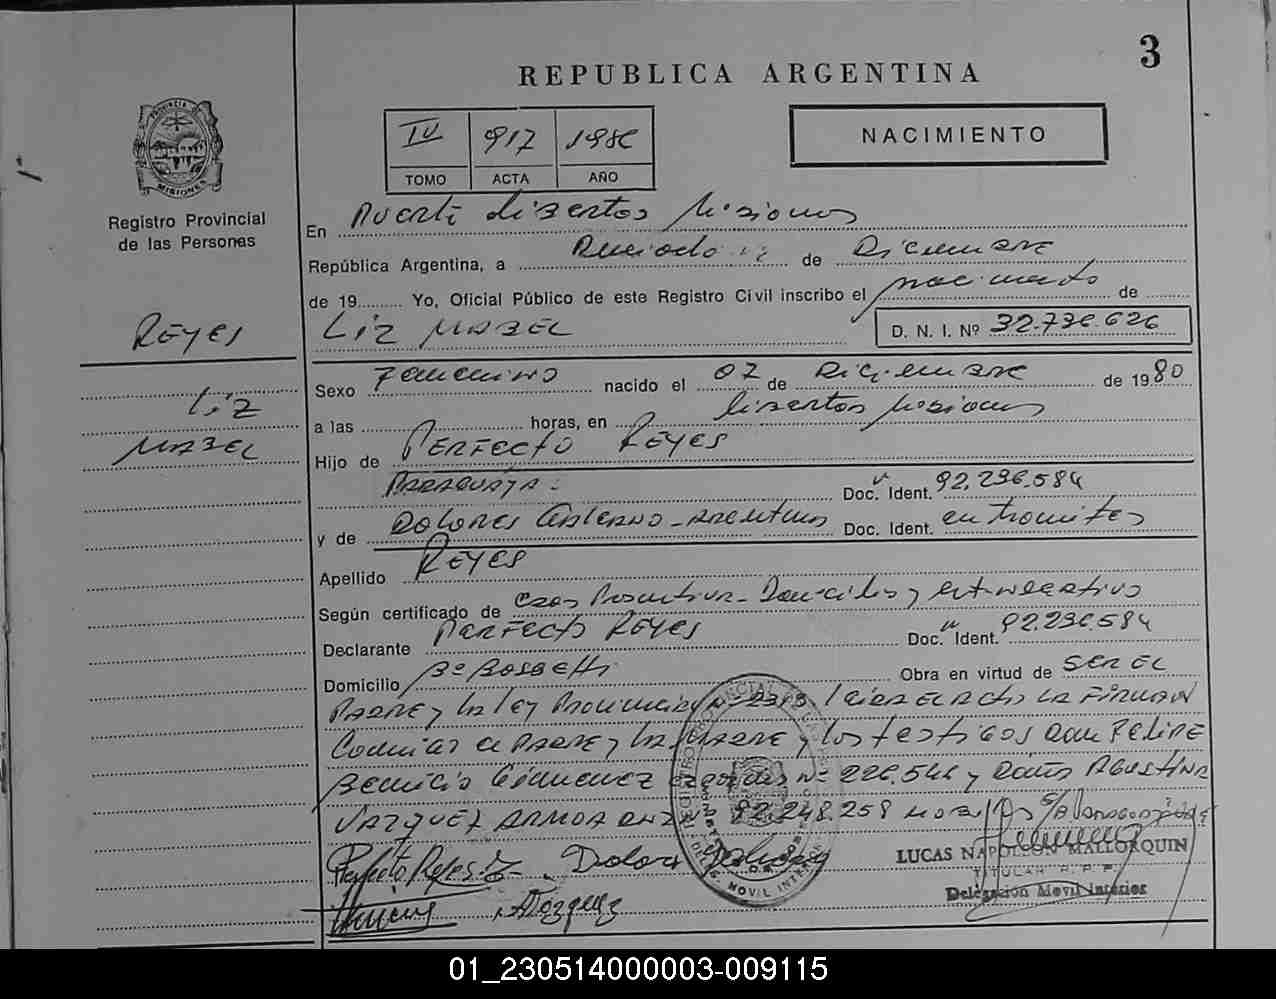 3
REPUBLICA ARGENTINA
PROVINCIA DE
MISIONES
IV 917 198
TOMO ACTA AÑO
NACIMIENTO
Registro Provincial
de las Personas
En Libertad Misiones
República Argentina, a de Diciembre
de 19 Yo, Oficial Público de este Registro Civil inscribo el nacimiento de
REYES
LIZ MABEL D. N. I. Nº 32.736.626
Sexo Femenino nacido el 07 de Diciembre de 1980
LIZ
a las horas, en Libertad Misiones
MABEL
Hijo de PERFECTO REYES
PARAGUAYA. Doc. Ident. 92.236.584
y de DOLORES Doc. Ident. en tramites
Apellido REYES
Según certificado de
Declarante PERFECTO REYES Doc. Ident. 92.236.584
Domicilio Bº Obra en virtud de SER EL
PADRE y la ley Provincial Nº LA FIRMAN
el PADRE y la MADRE y los testigos don FELIPE
GIMENEZ Nº 226.546 y doña AGUSTINA
VAZQUEZ 92.248.258
Perfecto Reyes Dolores
Vazquez
LUCAS NAPOLEON MALLORQUIN
TITULAR R. P. P.
Delegación Movil Interior
01_230514000003-009115